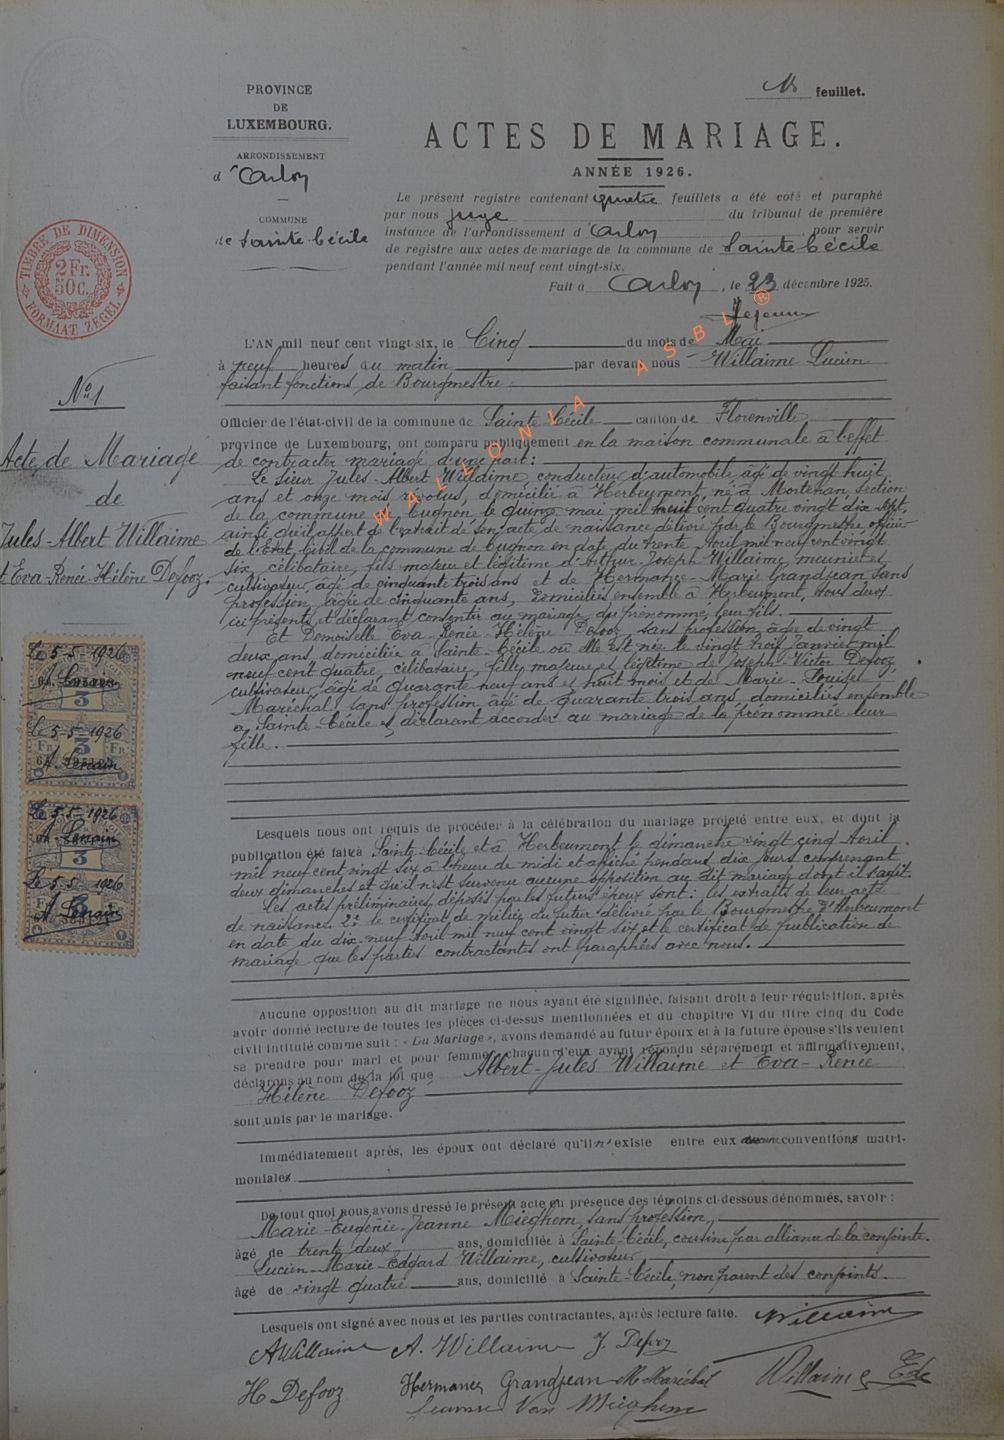 feuillet.
PROVINCE
DE
LUXEMBOURG.
ARRONDISSEMENT
d'Arlon
COMMUNE
de Sainte-Cécile
ACTES DE MARIAGE.
ANNÉE 1926.
Le présent registre contenant quatre feuillets a été coté et paraphé
par nous juge du tribunal de première
instance de l'arrondissement d'Arlon pour servir
de registre aux actes de mariage de la commune de Sainte Cécile
pendant l'année mil neuf cent vingt-six.
Fait à Arlon, le 23 décembre 1925.
TIMBRE DE DIMENSION
2 Fr.
50 C.
FORMAAT ZEGEL
WALLONIA ASBL ®
L'AN mil neuf cent vingt-six, le Cinq du mois de Mai
à neuf heures du matin par devant nous Willaime Lucien
faisant fonctions de Bourgmestre
Officier de l'état-civil de la commune de Sainte Cécile canton de Florenville
province de Luxembourg, ont comparu publiquement en la maison communale à l'effet
de contracter mariage d'une part:
Le sieur Jules-Albert Willaime, conducteur d'automobile, âgé de vingt huit
ans et onze mois révolus, domicilié à Herbeumont, né à Mortehan, section
de la commune de Cugnon le quinze mai mil huit cent quatre vingt dix sept,
ainsi qu'il appert de l'extrait de son acte de naissance délivré par le Bourgmestre, officier
de l'Etat Civil de la commune de Cugnon en date du trente Avril mil neuf cent vingt
six, célibataire, fils majeur et légitime d'Arthur-Joseph Willaime, meunier et
cultivateur, âgé de cinquante trois ans et de Hermance-Marie Grandjean sans
profession, âgée de cinquante ans, domiciliés ensemble à Herbeumont, tous deux
ici présents et déclarant consentir au mariage du prénommé, leur fils.
Et Demoiselle Eva-Renée-Hélène Defooz, sans profession, âgée de vingt
deux ans domiciliée à Sainte-Cécile où elle est née le vingt trois Janvier mil
neuf cent quatre, célibataire, fille majeure et légitime de Joseph-Victor Defooz,
cultivateur, âgé de quarante neuf ans et huit mois et de Marie-Louise
Maréchal, sans profession âgée de quarante trois ans, domiciliés ensemble
à Sainte-Cécile et déclarant accorder au mariage de la prénommée leur
fille.
No 1
Acte de Mariage
de
Jules-Albert Willaime
et Eva-Renée-Hélène Defooz.
Le 5-5-1926
A. Lenain
3
Le 5-5-1926
Fr 3 Fr
A. Lenain
Le 5-5-1926
A. Lenain
3
Le 5-5-1926
A. Lenain
Lesquels nous ont requis de procéder à la célébration du mariage projeté entre eux, et dont la
publication été faite à Sainte-Cécile et à Herbeumont le dimanche vingt cinq Avril
mil neuf cent vingt six à l'heure de midi et affiché pendant dix jours comprenant
deux dimanches et qu'il n'est survenu aucune opposition au dit mariage dont il s'agit.
Les actes préliminaires, déposés par les futurs époux sont: les extraits de leur acte
de naissance 2° le certificat de milice du futur délivré par le Bourgmestre d'Herbeumont
en date du dix-neuf Avril mil neuf cent vingt six et le certificat de publication de
mariage que les parties contractantes ont paraphées avec nous.
Aucune opposition au dit mariage ne nous ayant été signifiée, faisant droit à leur réquisition, après
avoir donné lecture de toutes les pièces ci-dessus mentionnées et du chapitre VI du titre cinq du Code
civil intitulé comme suit : « Du Mariage », avons demandé au futur époux et à la future épouse s'ils veulent
se prendre pour mari et pour femme, chacun d'eux ayant répondu séparément et affirmativement,
déclarons au nom de la loi que Albert-Jules Willaime et Eva-Renée
Hélène Defooz
sont unis par le mariage.
Immédiatement après, les époux ont déclaré qu'il n'existe entre eux aucune conventions matri-
moniales
De tout quoi nous avons dressé le présent acte en présence des témoins ci-dessous dénommés, savoir :
Marie-Eugénie-Jeanne Mieghem, sans profession,
âgé de trente deux ans, domiciliée à Sainte-Cécile, cousine par alliance de la conjointe.
Lucien-Marie-Edgard Willaime, cultivateur,
âgé de vingt quatre ans, domicilié à Sainte-Cécile, non parent des conjoints.
Lesquels ont signé avec nous et les parties contractantes, après lecture faite. Willaime
A Willaime A. Willaime J. Defooz
H Defooz Hermance Grandjean M Maréchal Willaime Ed
Jeanne Van Mieghem